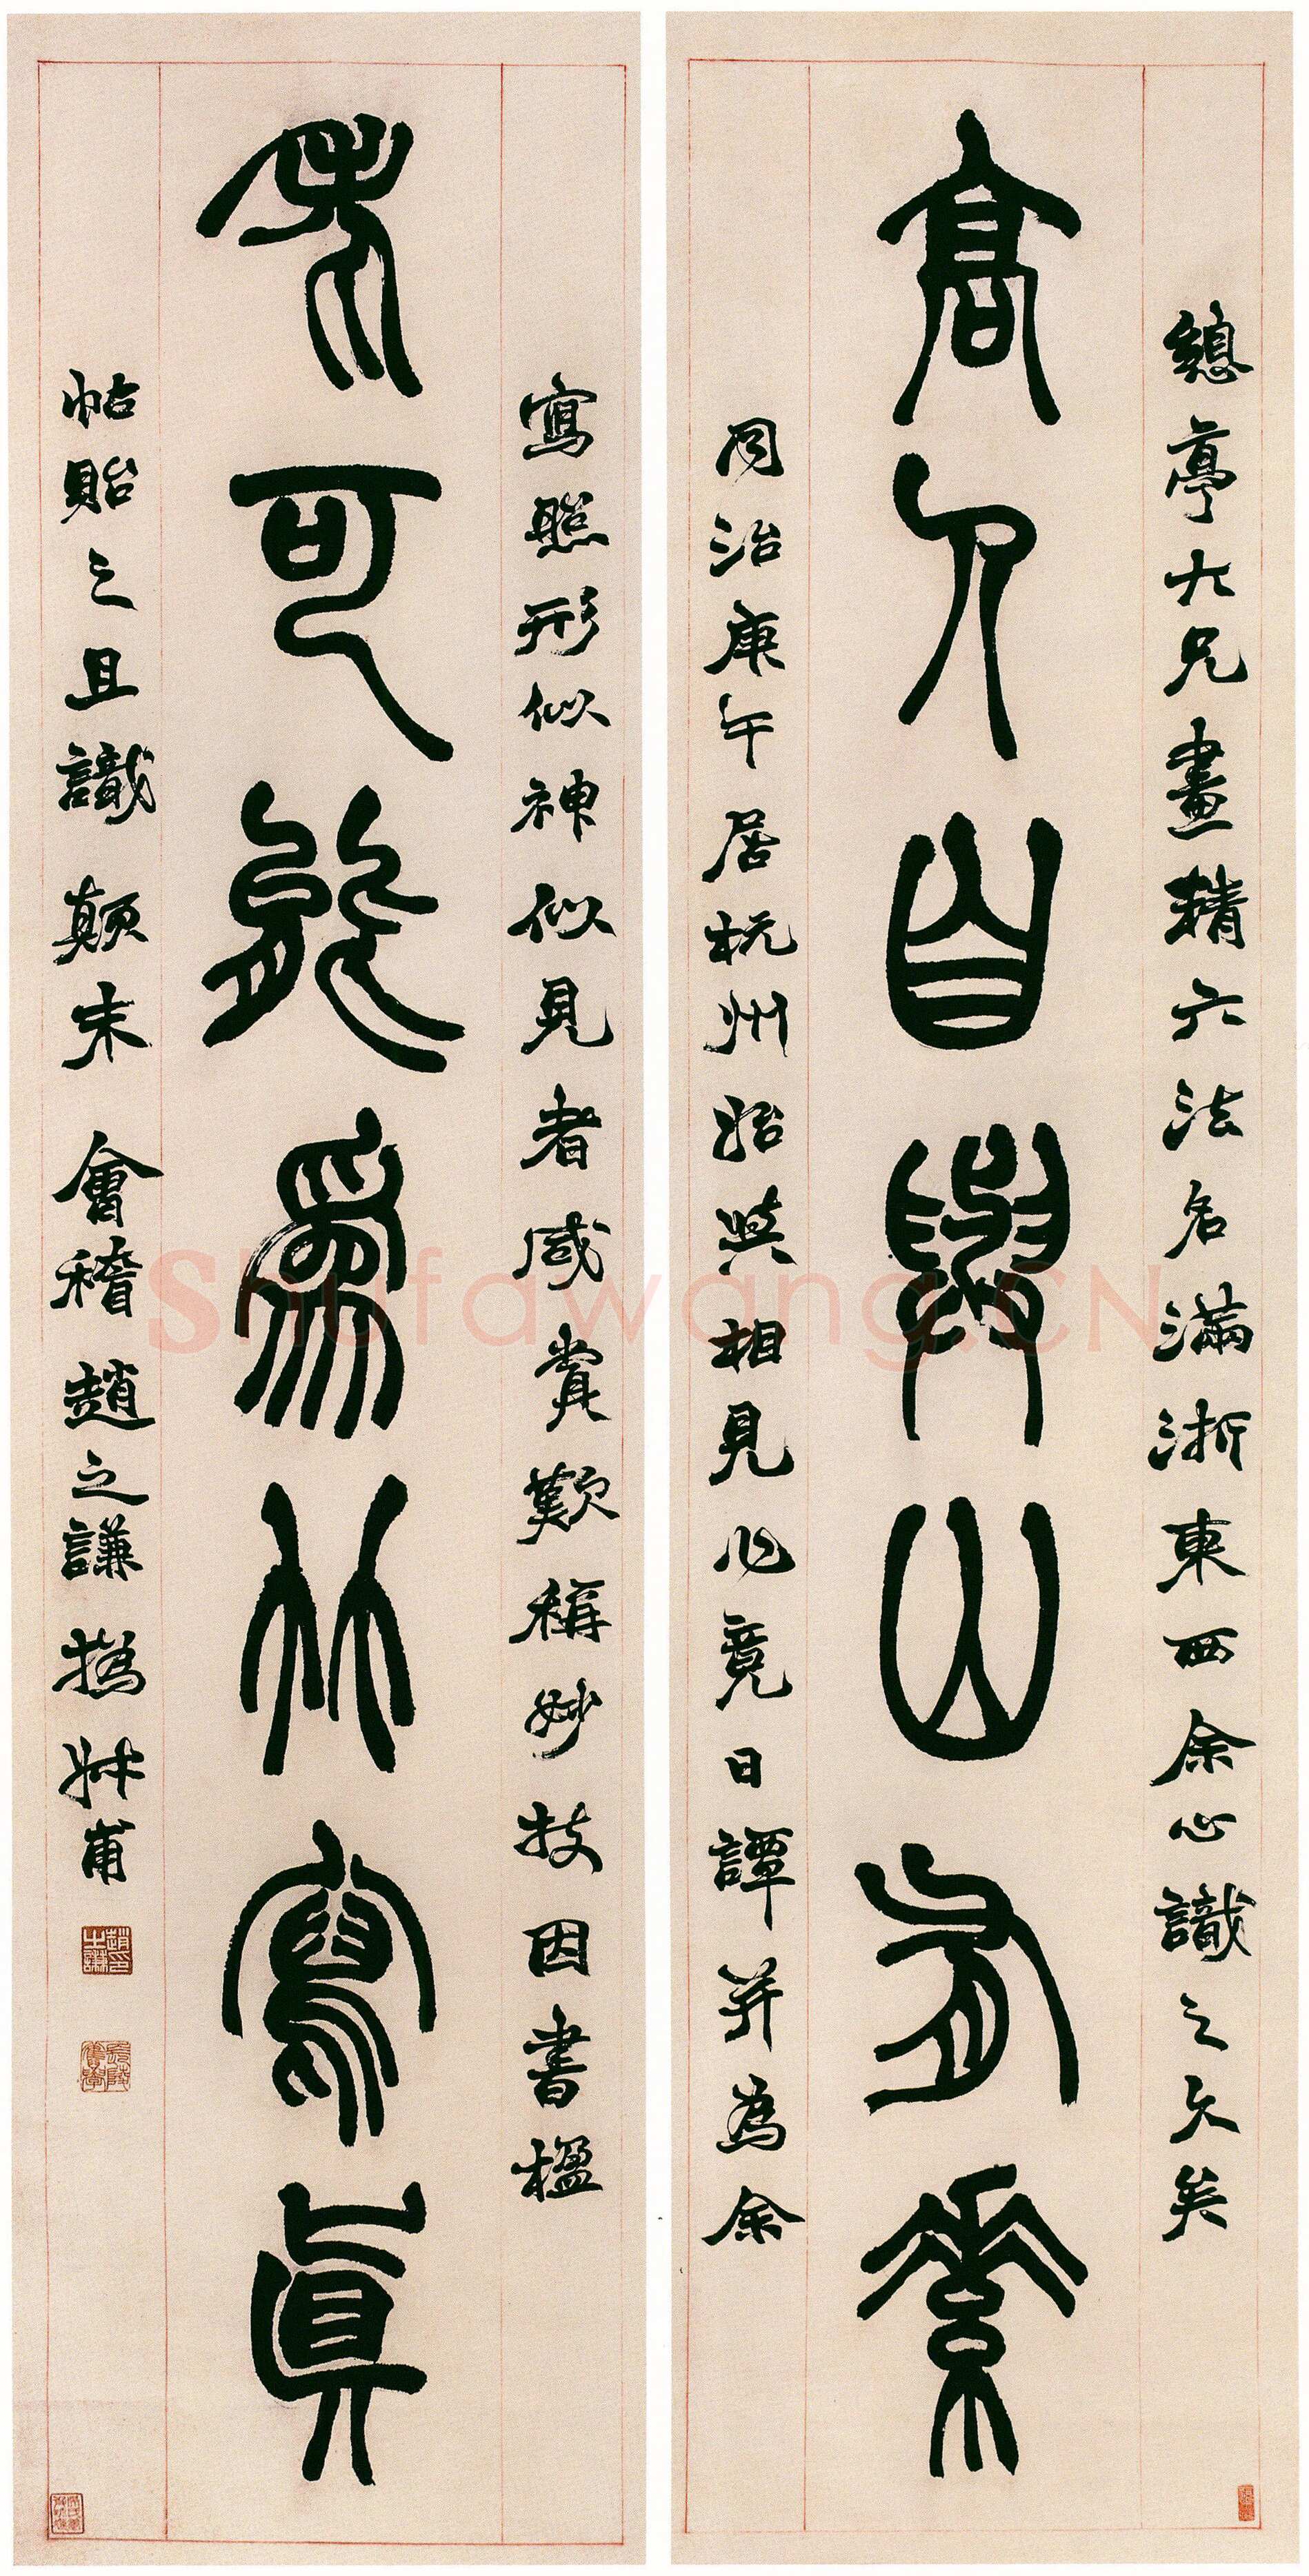 總亭大兄畫精六法名滿浙東西余心識之久矣
高人自與山有素
同治庚午居杭州始與相見必竟日譚并為余
寫照形似神似見者咸賞歎稱妙技因書楹
老可能為竹寫真
帖貽之且識顛末 會稽趙之謙撝叔甫
Shufawang.CN